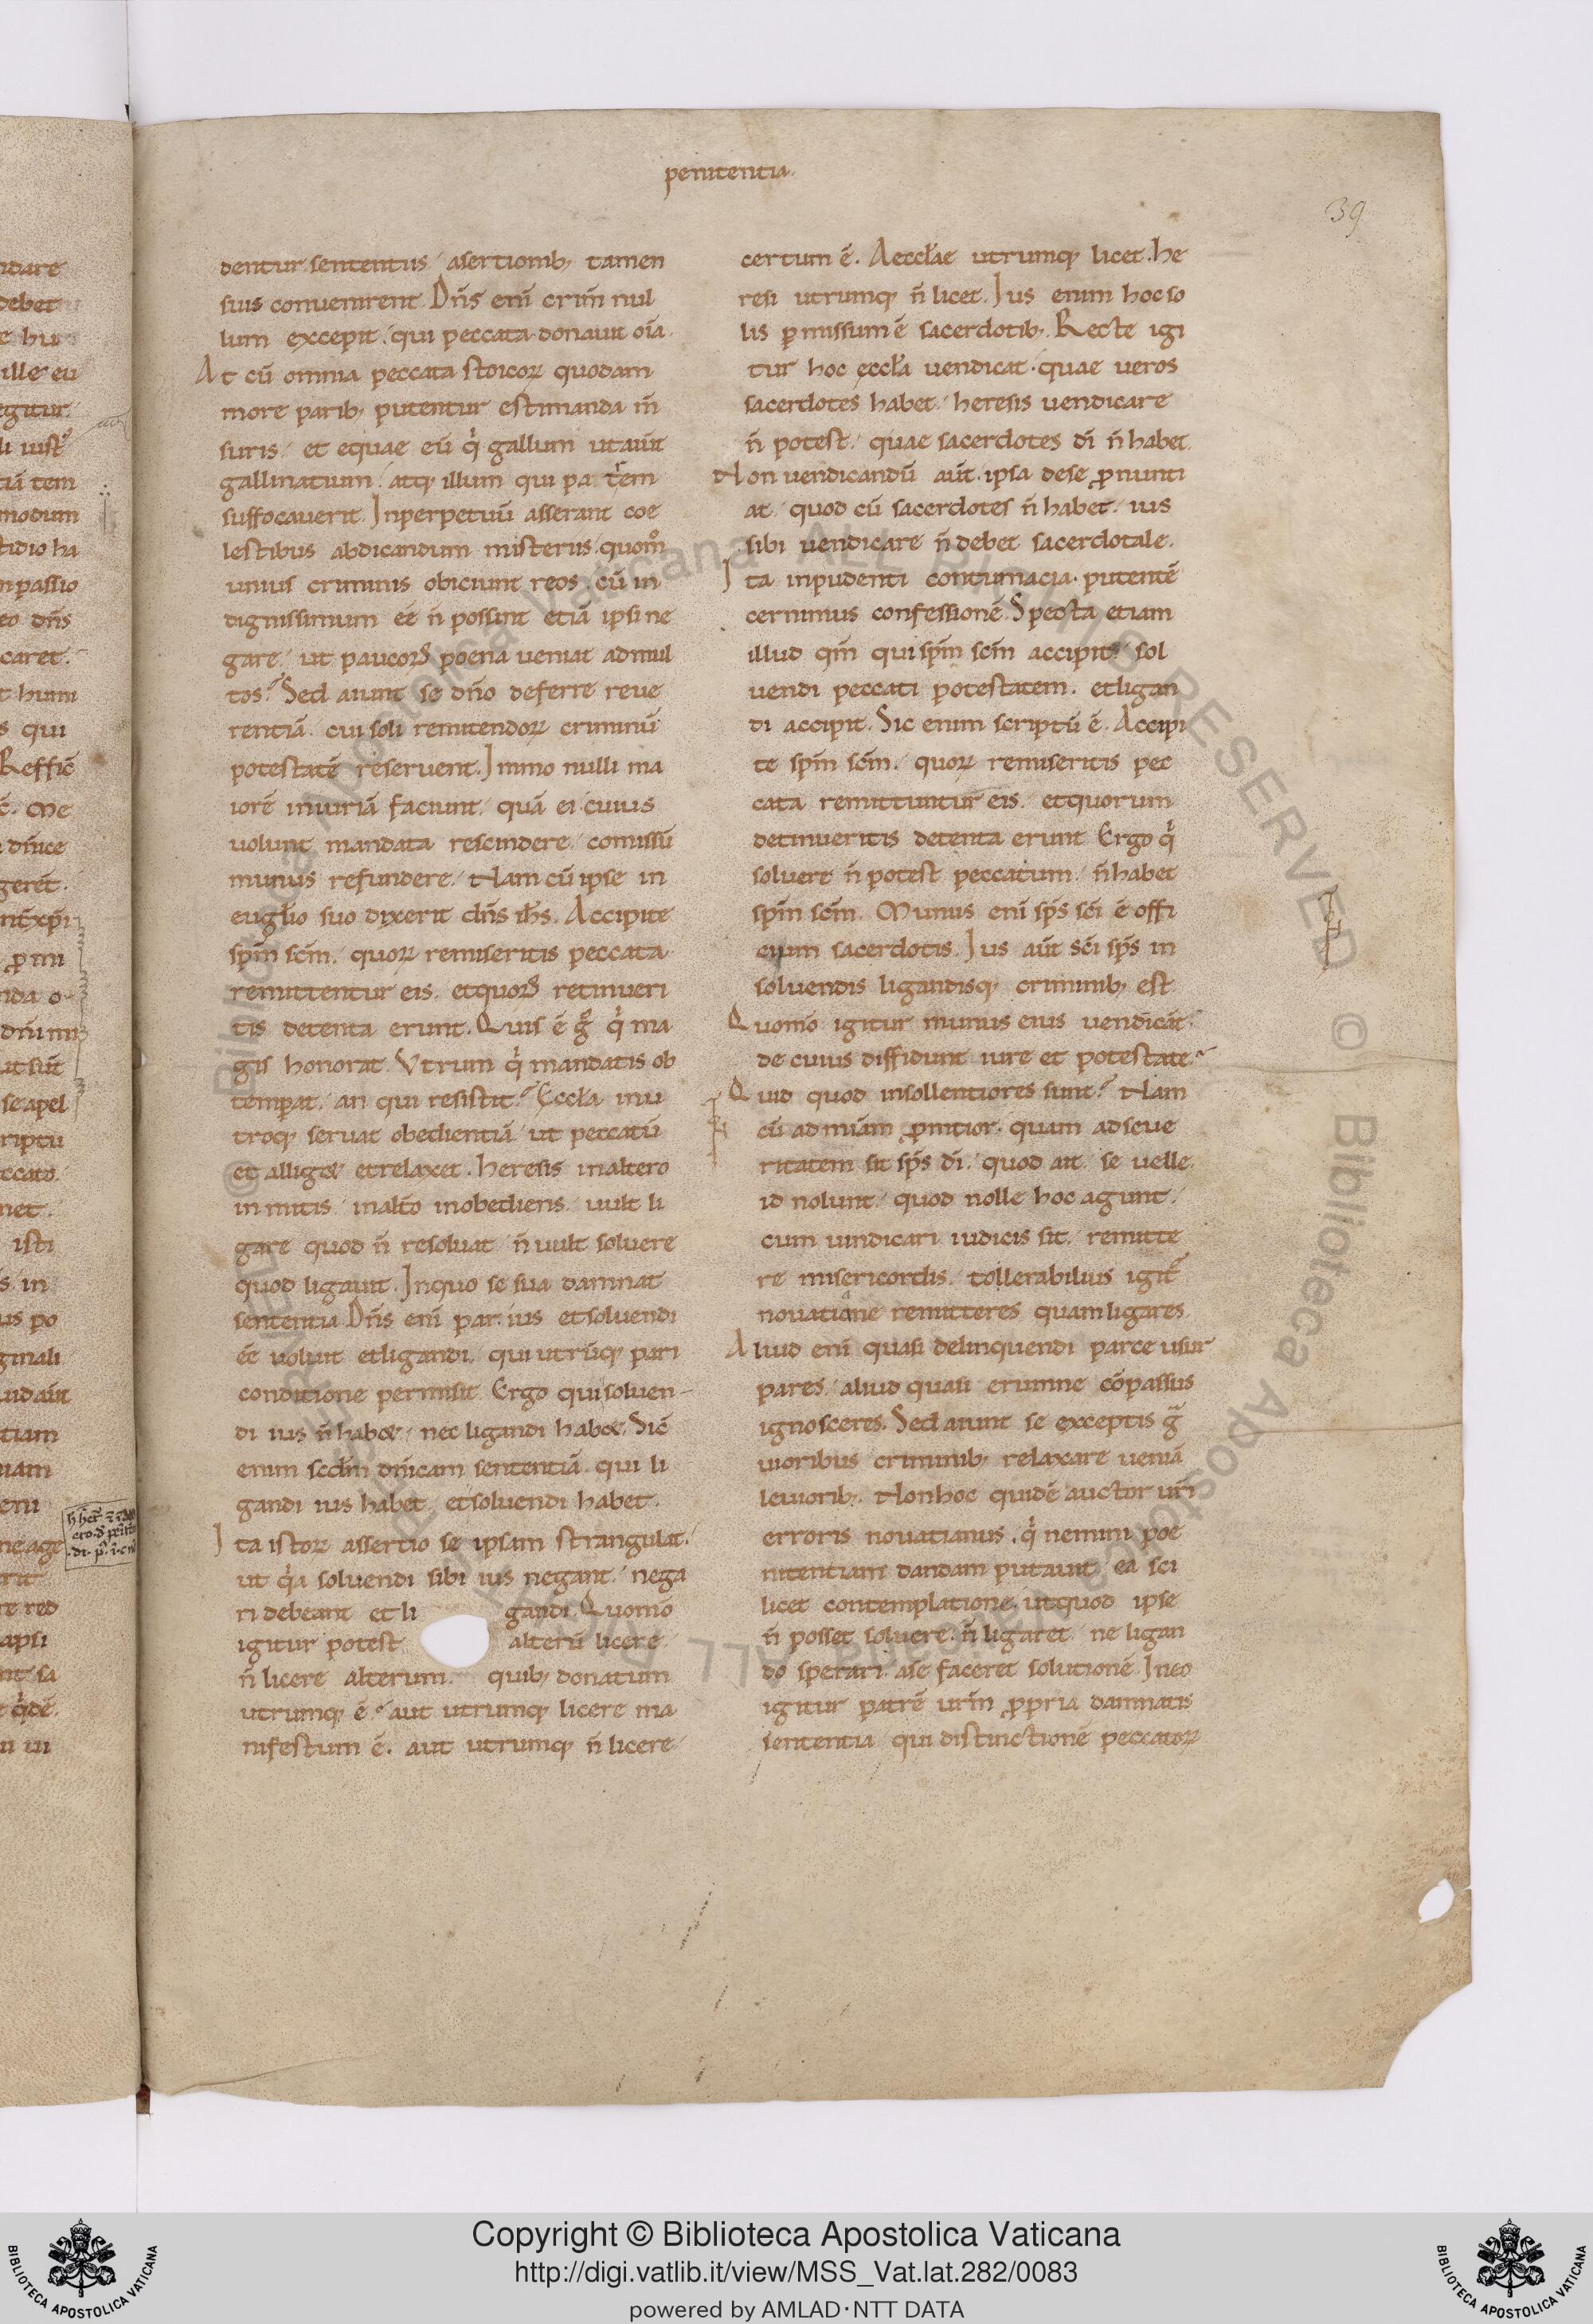 penitentia.
39
dentur sententiis / asertionib; tamen
suis convenirent. Dñs eni᷑ crim̃ nul
lum excepit / qui peccata donavit oĩa.
At cũ omnia peccata stoicoꝝ quodam
more parib; putentur estimanda m̃
suris / et eque eũ q̇ gallum ut aiũt
gallinatium / atq; illum qui pa t̃em
suffocaverit. Inperpetuũ asserant coe
lestibus abdicandum misteriis. quom̊
unius criminis obiciunt reos / cũ in
dignissimum eẽ ñ possint etiã ipsi ne
gare / ut paucoꝝ poena veniat ad mul
tos? Sed aiunt se dño deferre reve
rentiã cui soli remitendoꝝ criminũ
potestatẽ reservent. Immo nulli ma
iorẽ iniuriã faciunt / quã ei cuius
volunt mandata rescindere / comissũ
munus refundere / Nam cũ ipse in
euglĩo suo dixerit dñs ihs̃. Accipite
spm̃ scm̃. quoꝝ remiseritis peccata
remittentur eis. et quoꝝ retinueri
tis detenta erunt. Quis ẽ g̊ q̇ ma
gis honorat. Utrum q̇ mandatis ob
temperat / an qui resistit? Ęccła inu
troq; servat obedientiã / ut peccatũ
et allig& et relaxet. heresis in altero
inmitis / inalt̃o inobediens. vult li
gare quod ñ resolvat / ñ vult solvere
quod ligavit. Inquo se sua damnat
sententia. Dñs eni᷑ par ius et solvendi
eẽ voluit et ligandi. qui utrũq; pari
conditione permisit. Ergo qui solven-
di ius ñ hab& / nec ligandi hab&. Sic̃
enim scđm dñicam sententiã qui li
gandi ius habet / et solvendi habet.
Ita istoꝝ assertio se ipsam strangulat.
ut q̇a solvendi sibi ius negant / nega
ri debeant et li gandi. Quom̃o
igitur potest alterũ licere
ñ licere alterum. quib; donatum
utrumq; ẽ? aut utrumq; licere ma
nifestum ẽ. aut utrumq; ñ licere /
certum ẽ. Aeccłae utrumq; licet. he
resi utrumq; ñ licet. Ius enim hoc so
lis ꝑmissum ẽ sacerdotib;. Recte igi
tur hoc ęccła vendicat. quae veros
sacerdotes habet / heresis vendicare
ñ potest / quae sacerdotes dĩ ñ habet.
Non vendicandũ aũt ipsa de se ꝓnunti
at / quod cũ sacerdotes ñ habet / ius
sibi vendicare ñ debet sacerdotale.
Ita inpudenti contumacia. putentẽ
cernimus confessionẽ. Specta etiam
illud qm̃ qui spm̃ scm̃ accipit / sol
vendi peccati potestatem. et ligan
di accipit. Sic enim scriptũ ẽ. Accipi
te spm̃ scm̃. quoꝝ remiseritis pec
cata remittuntur eis. et quorum
detinueritis detenta erunt. Ergo q̇
solvere ñ potest peccatum / ñ habet
spm̃ scm̃. Munus eni᷑ sps̃ scĩ ẽ offi
cium sacerdotis. Ius aũt scĩ sps̃ in
solvendis ligandisq; criminib; est
Quom̃o igitur munus eius vendicãt
de cuius diffidunt iure et potestate?
Quid quod insollentiores sunt? Nam
cũ ad miam̃ ꝓnitior. quam ad seve
ritatem sit sps̃ dĩ. quod ait se velle.
id nolunt / quod nolle hoc agunt /
cum vindicari iudicis sit. remitte
re misericordis. tollerabilius igit̃
novatiane remitteres quam ligares.
Aliud eni᷑ quasi delinquendi parce usur
pares. aliud quasi erumne cõpassus
ignosceres. Sed aiunt se exceptis gͣ
vioribus criminib; relaxare veniã
leviorib;. Non hoc quidẽ auctor vrĩ
erroris novatianus. q̇ nemini poe
nitentiam dandam putavit / ea sci
licet contemplatione. ut quod ipse
ñ posset solvere. ñ ligaret ne ligan
do sperari. a se faceret solutionẽ. Ineo
igitur patrẽ vrm̃ ꝓpria damnatis
sententia / qui distinctionẽ peccatoꝝ
Copyright © Biblioteca Apostolica Vaticana
http://digi.vatlib.it/view/MSS_Vat.lat.282/0083
powered by AMLAD·NTT DATA